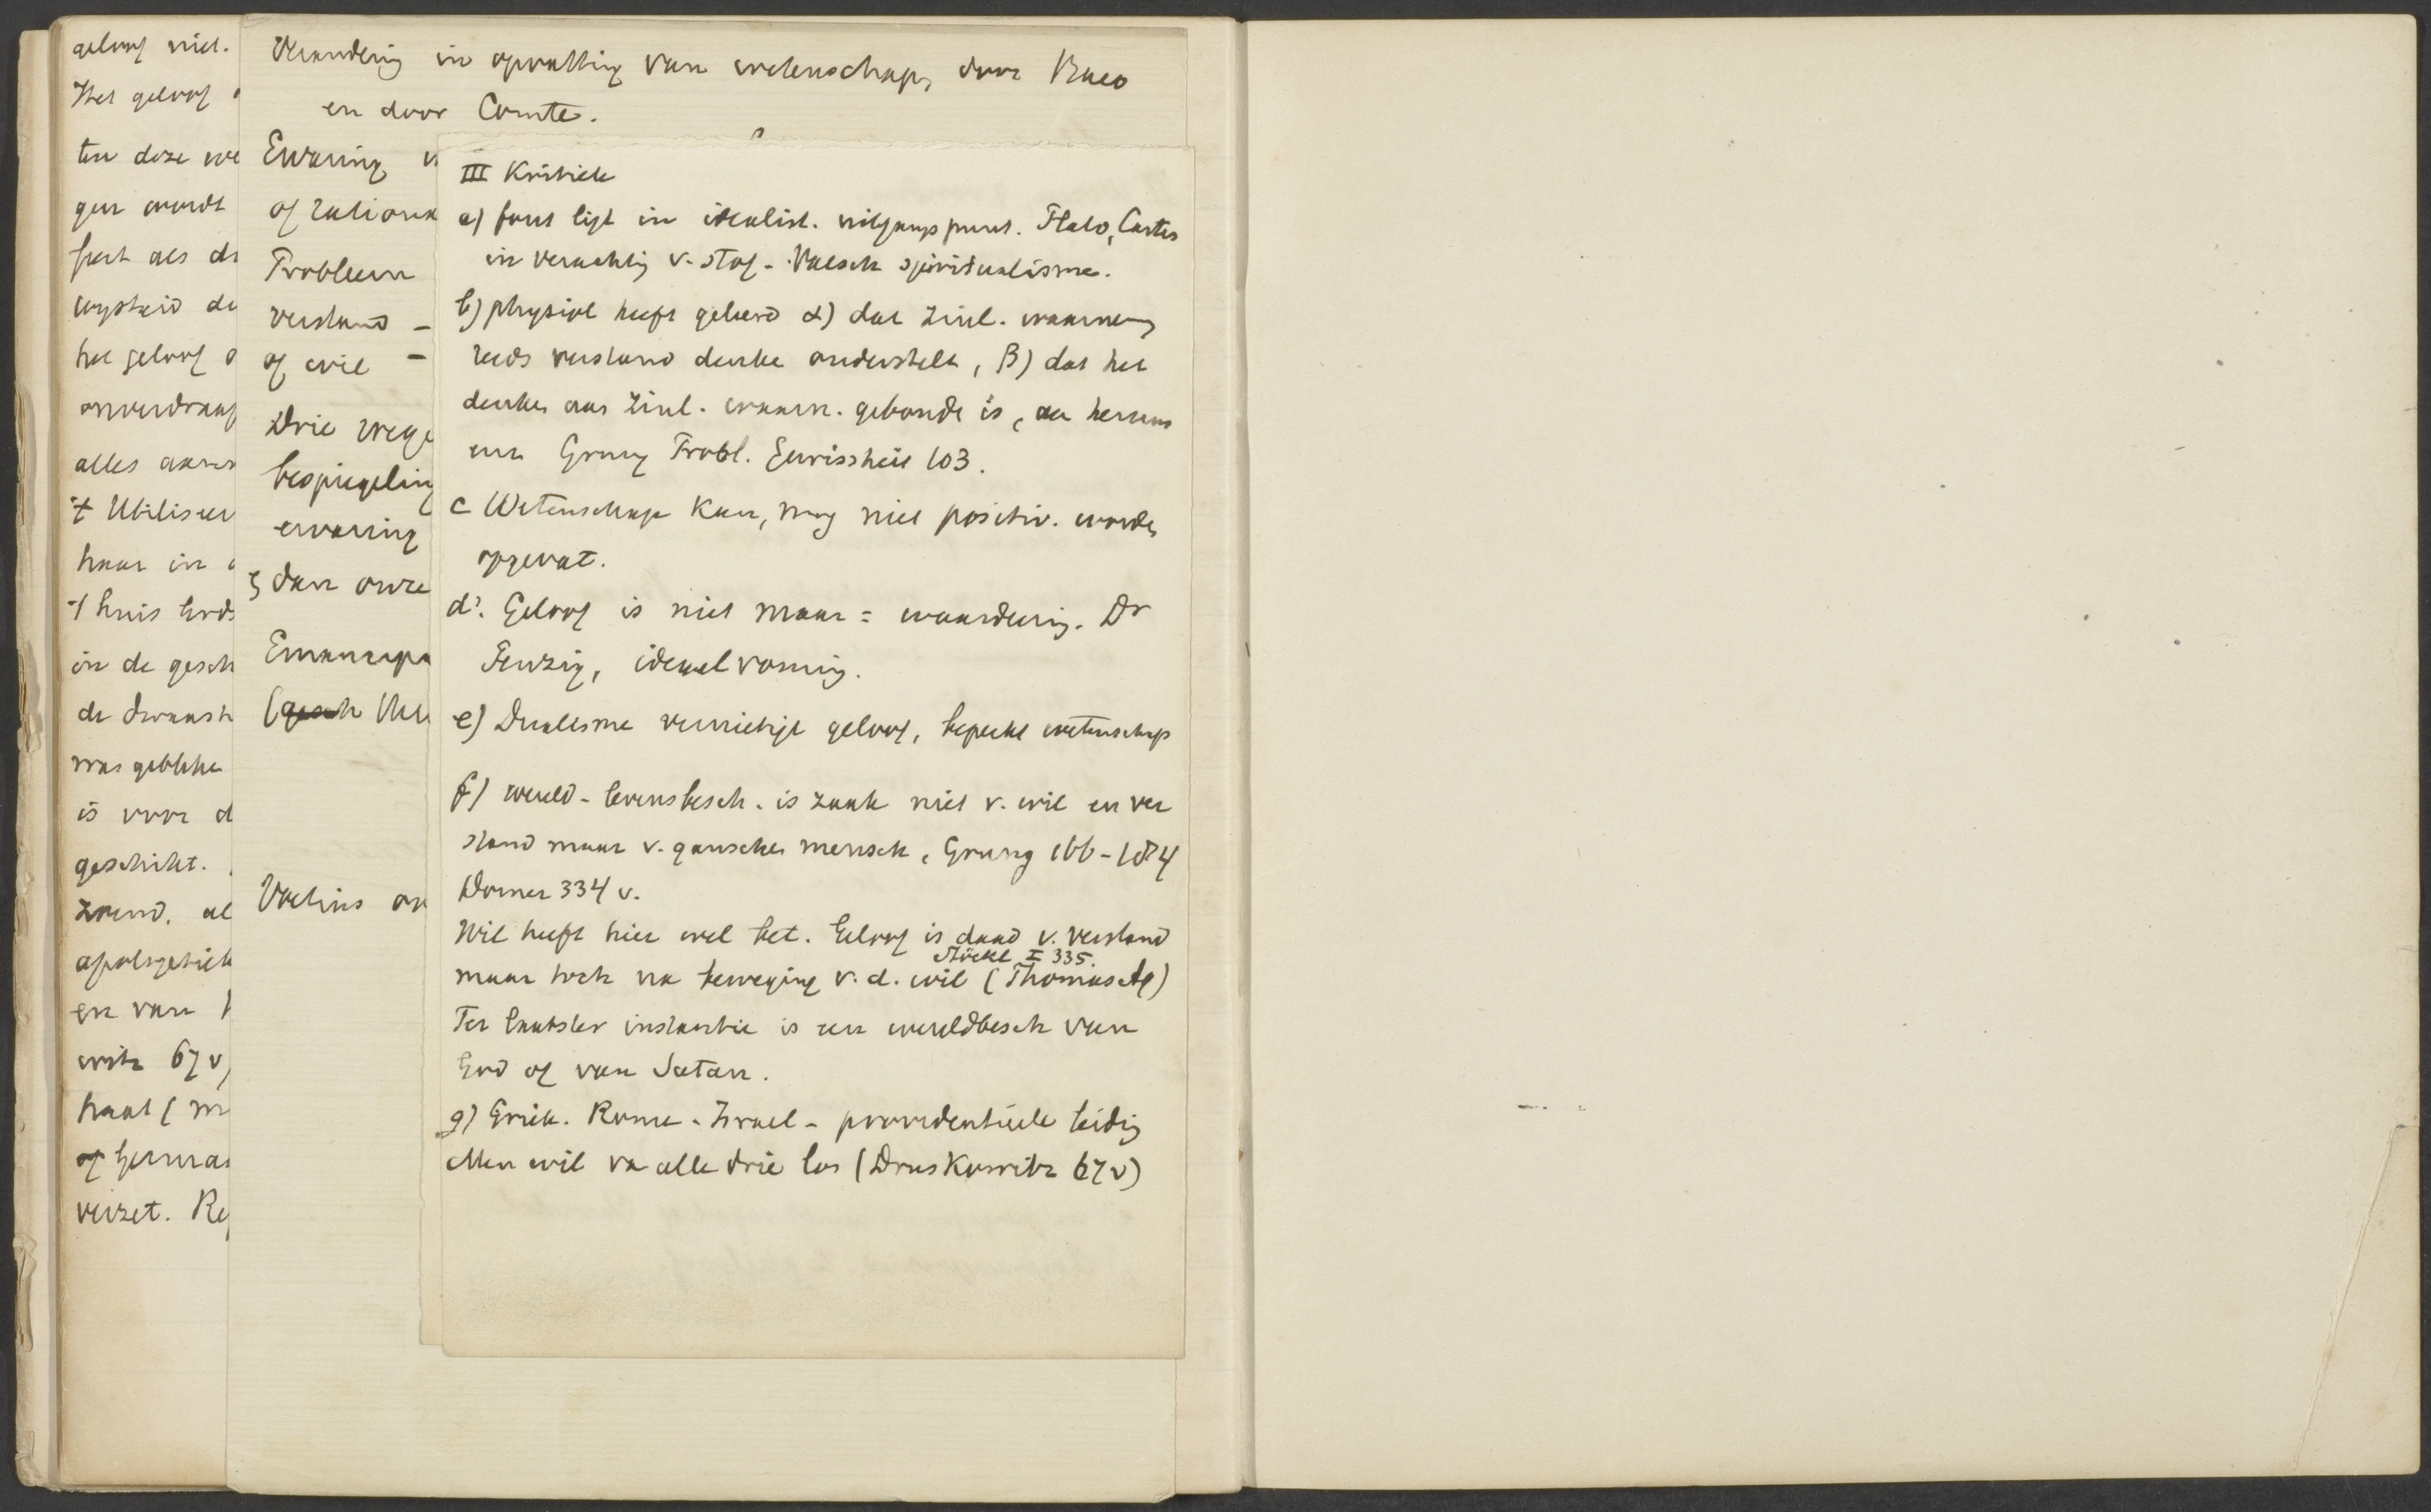 geloof niet.
Het geloof
ten deze we
gen wordt
feert als de
wysheid de
het geloof
onverdraag
alles
't Utiliseer
haar in
't huis
in de gesch
de
was gebleke
is voor d
geschikt.
al
apologetiek
en van
witz 67 v)
haat (m
of
verzet. Re
Verandering in opvatting van wetenschap, door Baco
en door Comte.
Ervaring v
of rationa
Probleem
verstand –
of wil –
Drie wege
bespiegeling
ervaring
dan onze
Emancipa
(gesch
Voetius
III Kritiek
a) fout ligt in idealist. uitgangspunt. Plato, Cartes
in verachting v. stof - Valsch spiritualisme.
b) physiol heeft geleerd α) dat zinl. waarneming
reeds verstand denke onderstelt, β) dat het
denken aan zinl. waarn. gebonde is, aan hersens
enz. Grung Probl. Gewissheit 103.
c Wetenschap kan, mag niet positiv. worden
opgevat.
d). Geloof is niet maar = waardeering. Dr
Fenzig, ideaalvorming.
e) Dualisme vernietigt geloof, beperkt wetenschap
f) wereld - levensbesch. is zaak niet v. wil en ver
stand maar v. ganschen mensch, Grung 166-184
Dorner 334 v.
Wil heeft hier wel bet. Geloof is daad v. verstand
Stöckl I 335.
maar toch na beweging v. d. wil (Thomas Aq)
Ter laatster instantie is een wereldbesch van
God of van Satan.
g) Griek. Rome - Israel - providentieele leiding
Men wil va alle drie los (Druskowitz 67 v)